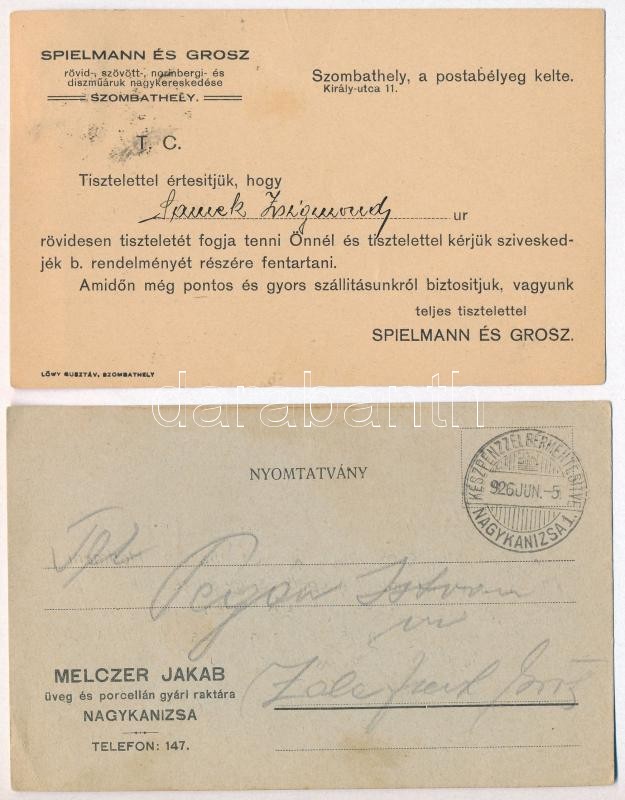 SPIELMANN ÉS GROSZ
rövid-, szövött-, norinbergi- és
diszműáruk nagykereskedése
SZOMBATHELY.
Szombathely, a postabélyeg kelte.
Király-utca 11.
T. C.
Tisztelettel értesitjük, hogy
Samek Zsigmond ur
rövidesen tiszteletét fogja tenni Önnél és tisztelettel kérjük szivesked-
jék b. rendelményét részére fentartani.
Amidőn még pontos és gyors szállitásunkról biztositjuk, vagyunk
teljes tisztelettel
SPIELMANN ÉS GROSZ.
LŐWY GUSZTÁV, SZOMBATHELY
darabanth
NYOMTATVÁNY
KÉSZPÉNZZEL BÉRMENTESITVE
926 JUN. -5.
NAGYKANIZSA 1.
István
MELCZER JAKAB
üveg és porcellán gyári raktára
NAGYKANIZSA
TELEFON: 147.